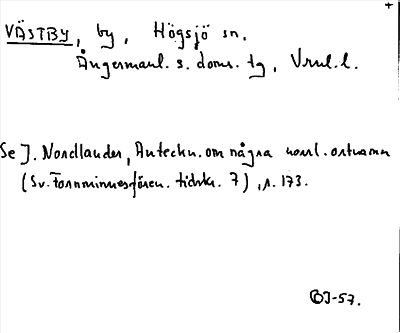 +
VÄSTBY, by, Högsjö sn,
Ångermanl. s. doms. tg, Vnul.l.
Se J. Nordlander, Anteckn. om några norrl. ortnamn
(Sv. Fornminnesfören. tidskr. 7), s. 173.
BJ-57.